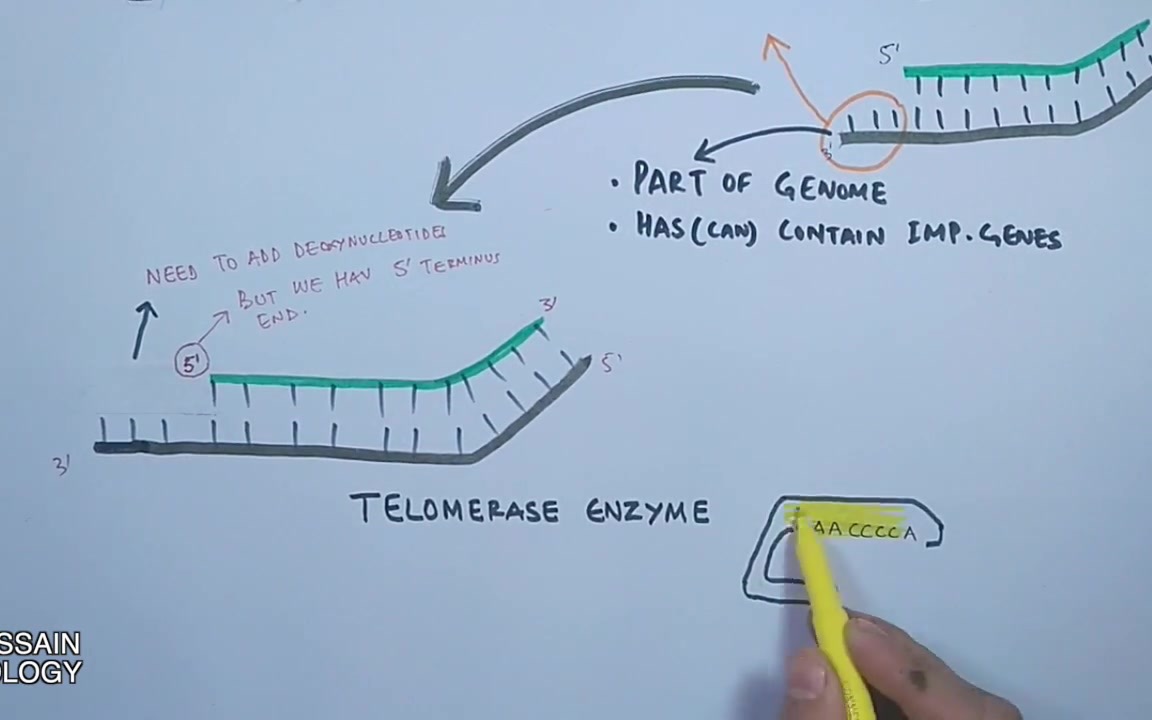 5'
3'
• PART OF GENOME
• HAS(CAN) CONTAIN IMP.GENES
NEED TO ADD DEOXYNUCLEOTIDES
BUT WE HAV 5' TERMINUS
END.
5'
3'
5'
3'
TELOMERASE ENZYME
AACCCCA
SSAIN
OLOGY